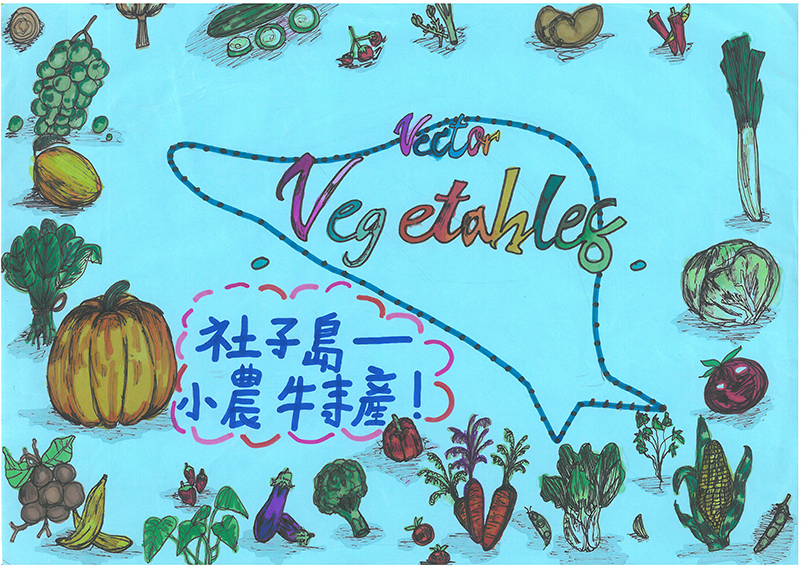 Vector
Vegetables
社子島—
小農特產!